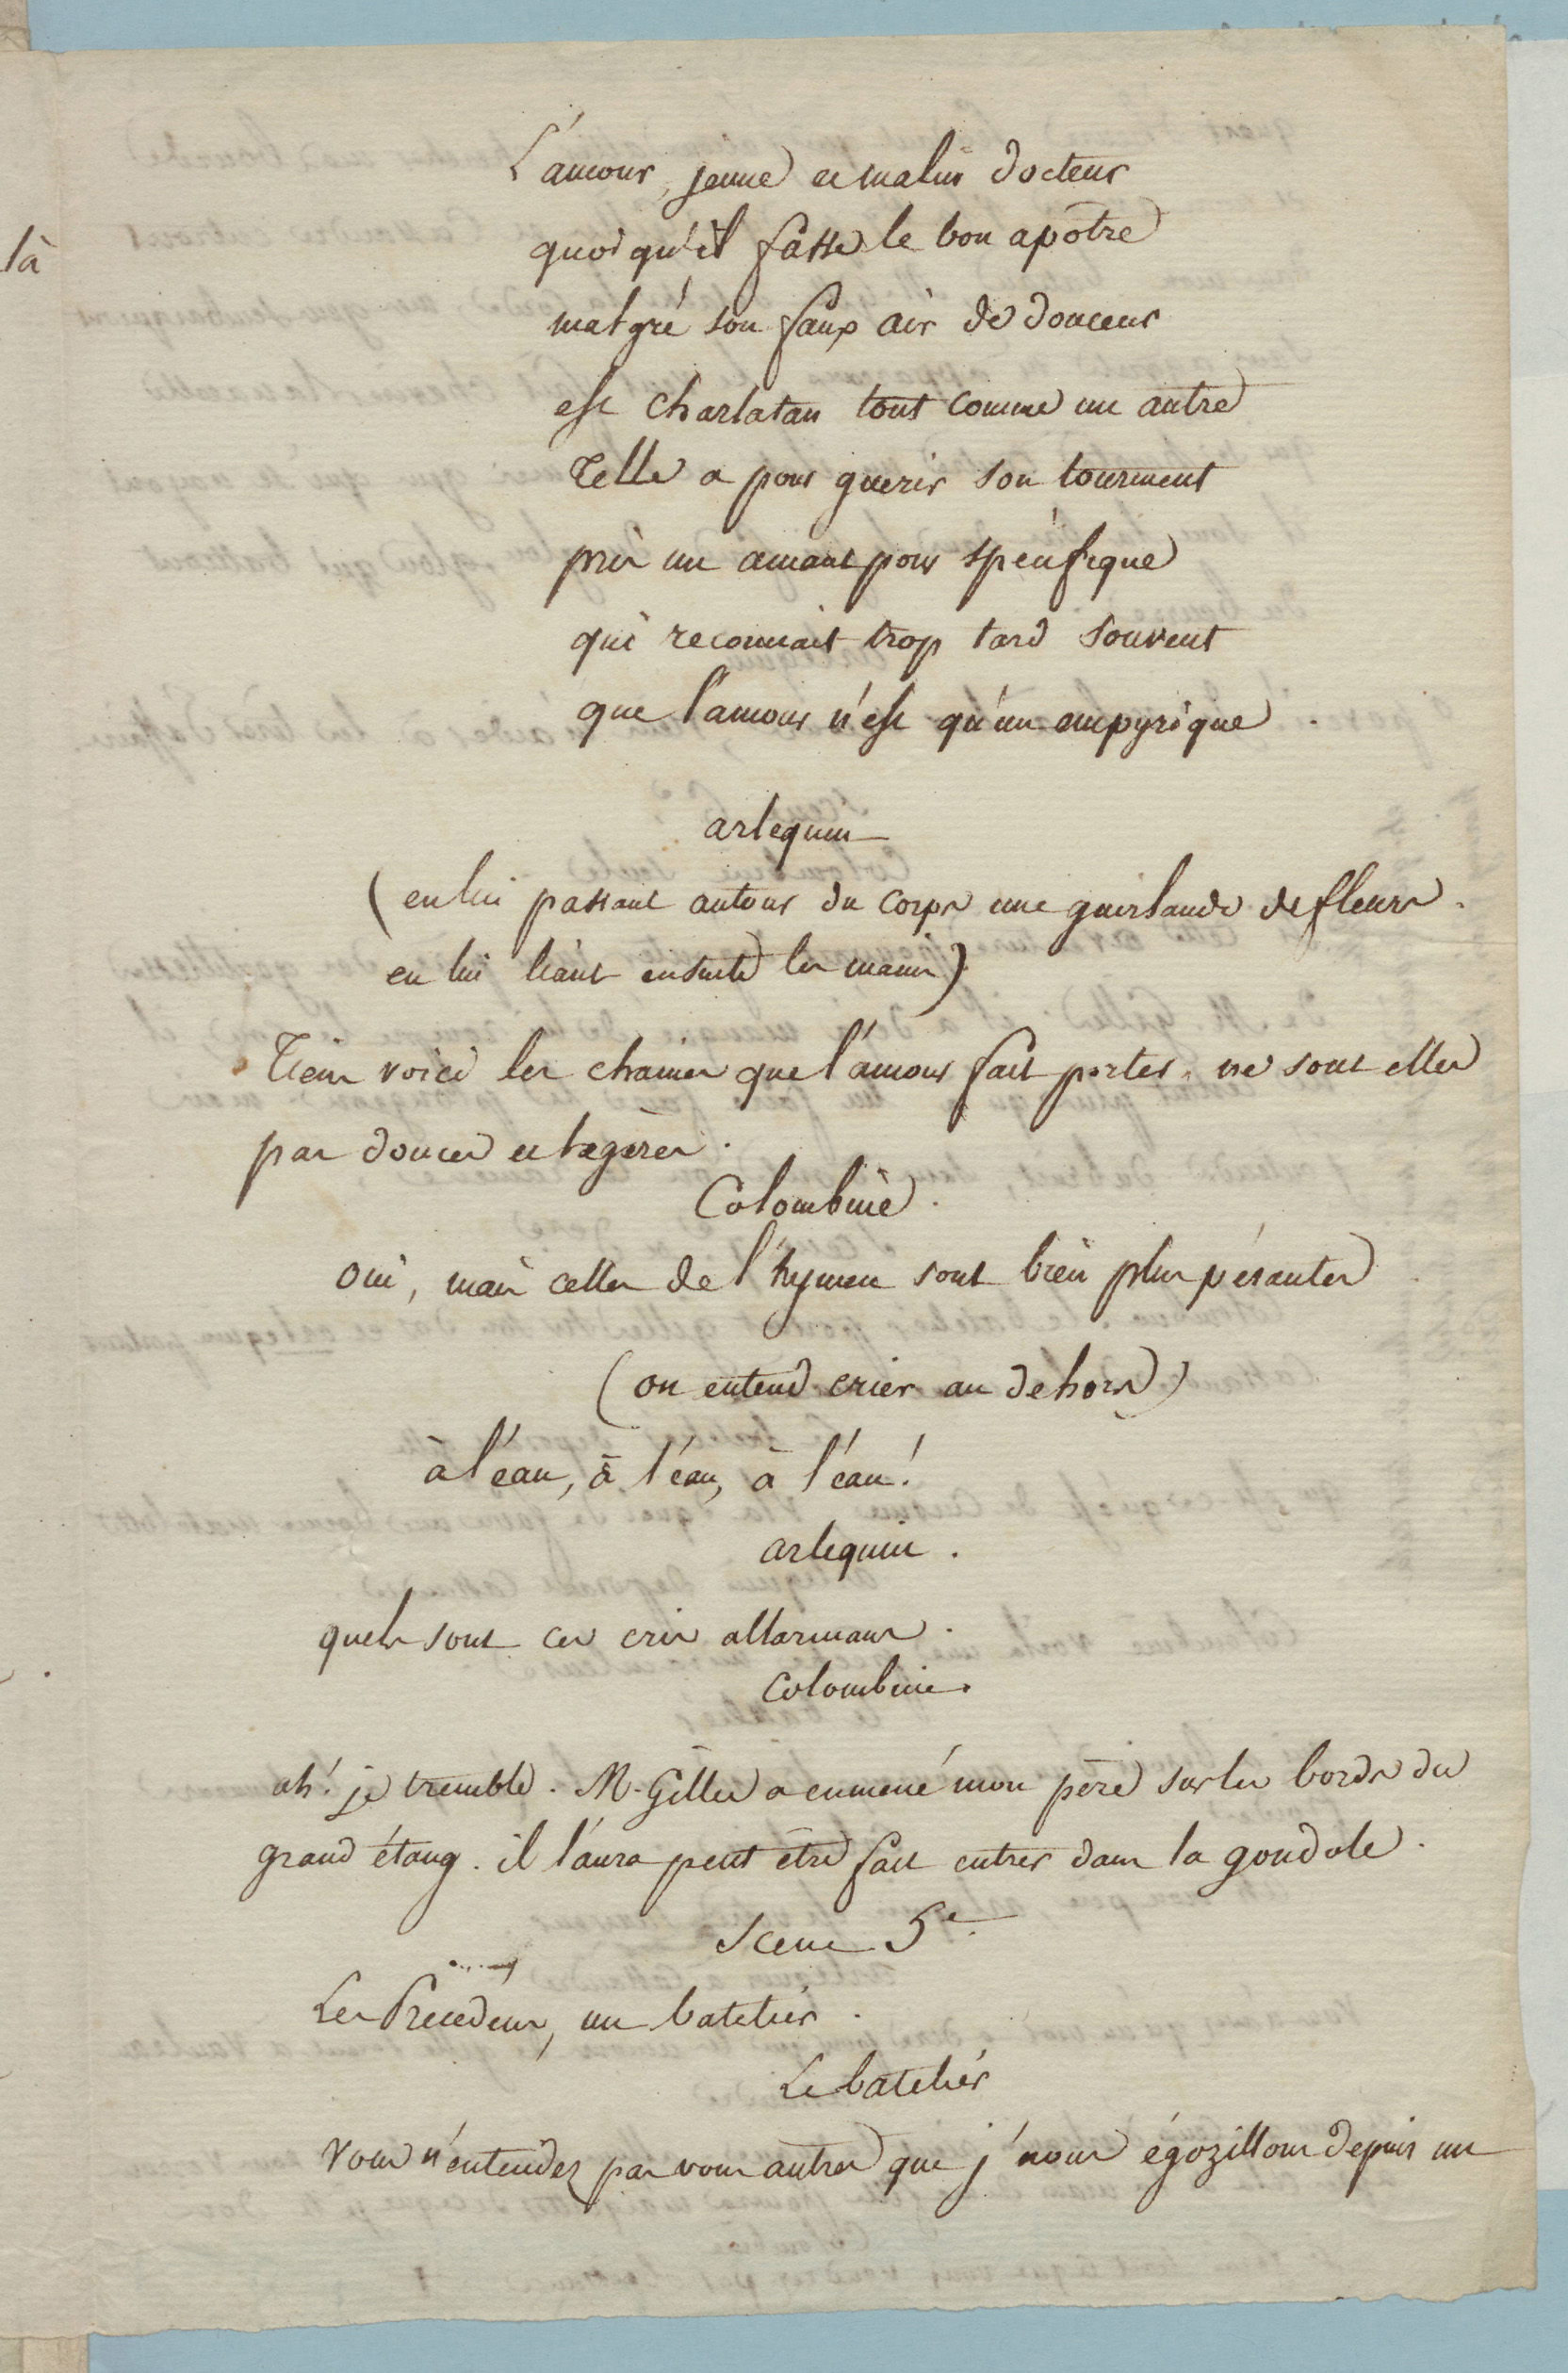 là
L'amour, jeune et malin docteur
quoi qu'il fasse le bon apôtre
malgré son faux air de douceur
est charlatan tout comme un autre
Telle a pour guerir son tourment
pris un amant pour spécifique
qui reconnait trop tard souvent
que l'amour n'est qu'un empyrique.
arlequin
(en lui passant autour du corps une guirlande de fleurs.
en lui liant ensuite les mains)
Tiens voici les chaines que l'amour fait porter. ne sont elles
pas douces et legères.
Colombine.
oui, mais celles de l'hymen sont bien plus pésantes
(on entend crier au dehors)
à l'éau, à l'éau, à l'éau!
arlequin.
quels sont ces cris allarmans.
Colombine.
ah! je tremble. M. Gilles a enmené mon père sur les bords du
grand étang. il l'aura peut être fait entrer dans la gondole.
Scene 5e.
Les Precedens, un batelier.
Le batelier
vous n'entendez pas vous autres que j'nous égozillons depuis un